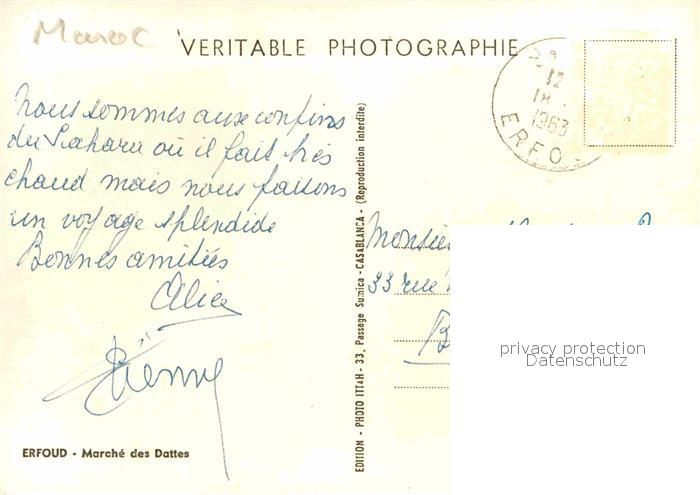 Maroc
VERITABLE PHOTOGRAPHIE
12
18
1963
ERFO
Nous sommes aux confins
du Sahara où il fait très
chaud mais nous faisons
un voyage splendide
Bonnes amitiés
Alice
Etienne
ERFOUD - Marché des Dattes
EDITION - PHOTO ITTAH - 33, Passage Sumica - CASABLANCA - (Reproduction interdite)
Monsieu
33 rue
B
privacy protection
Datenschutz